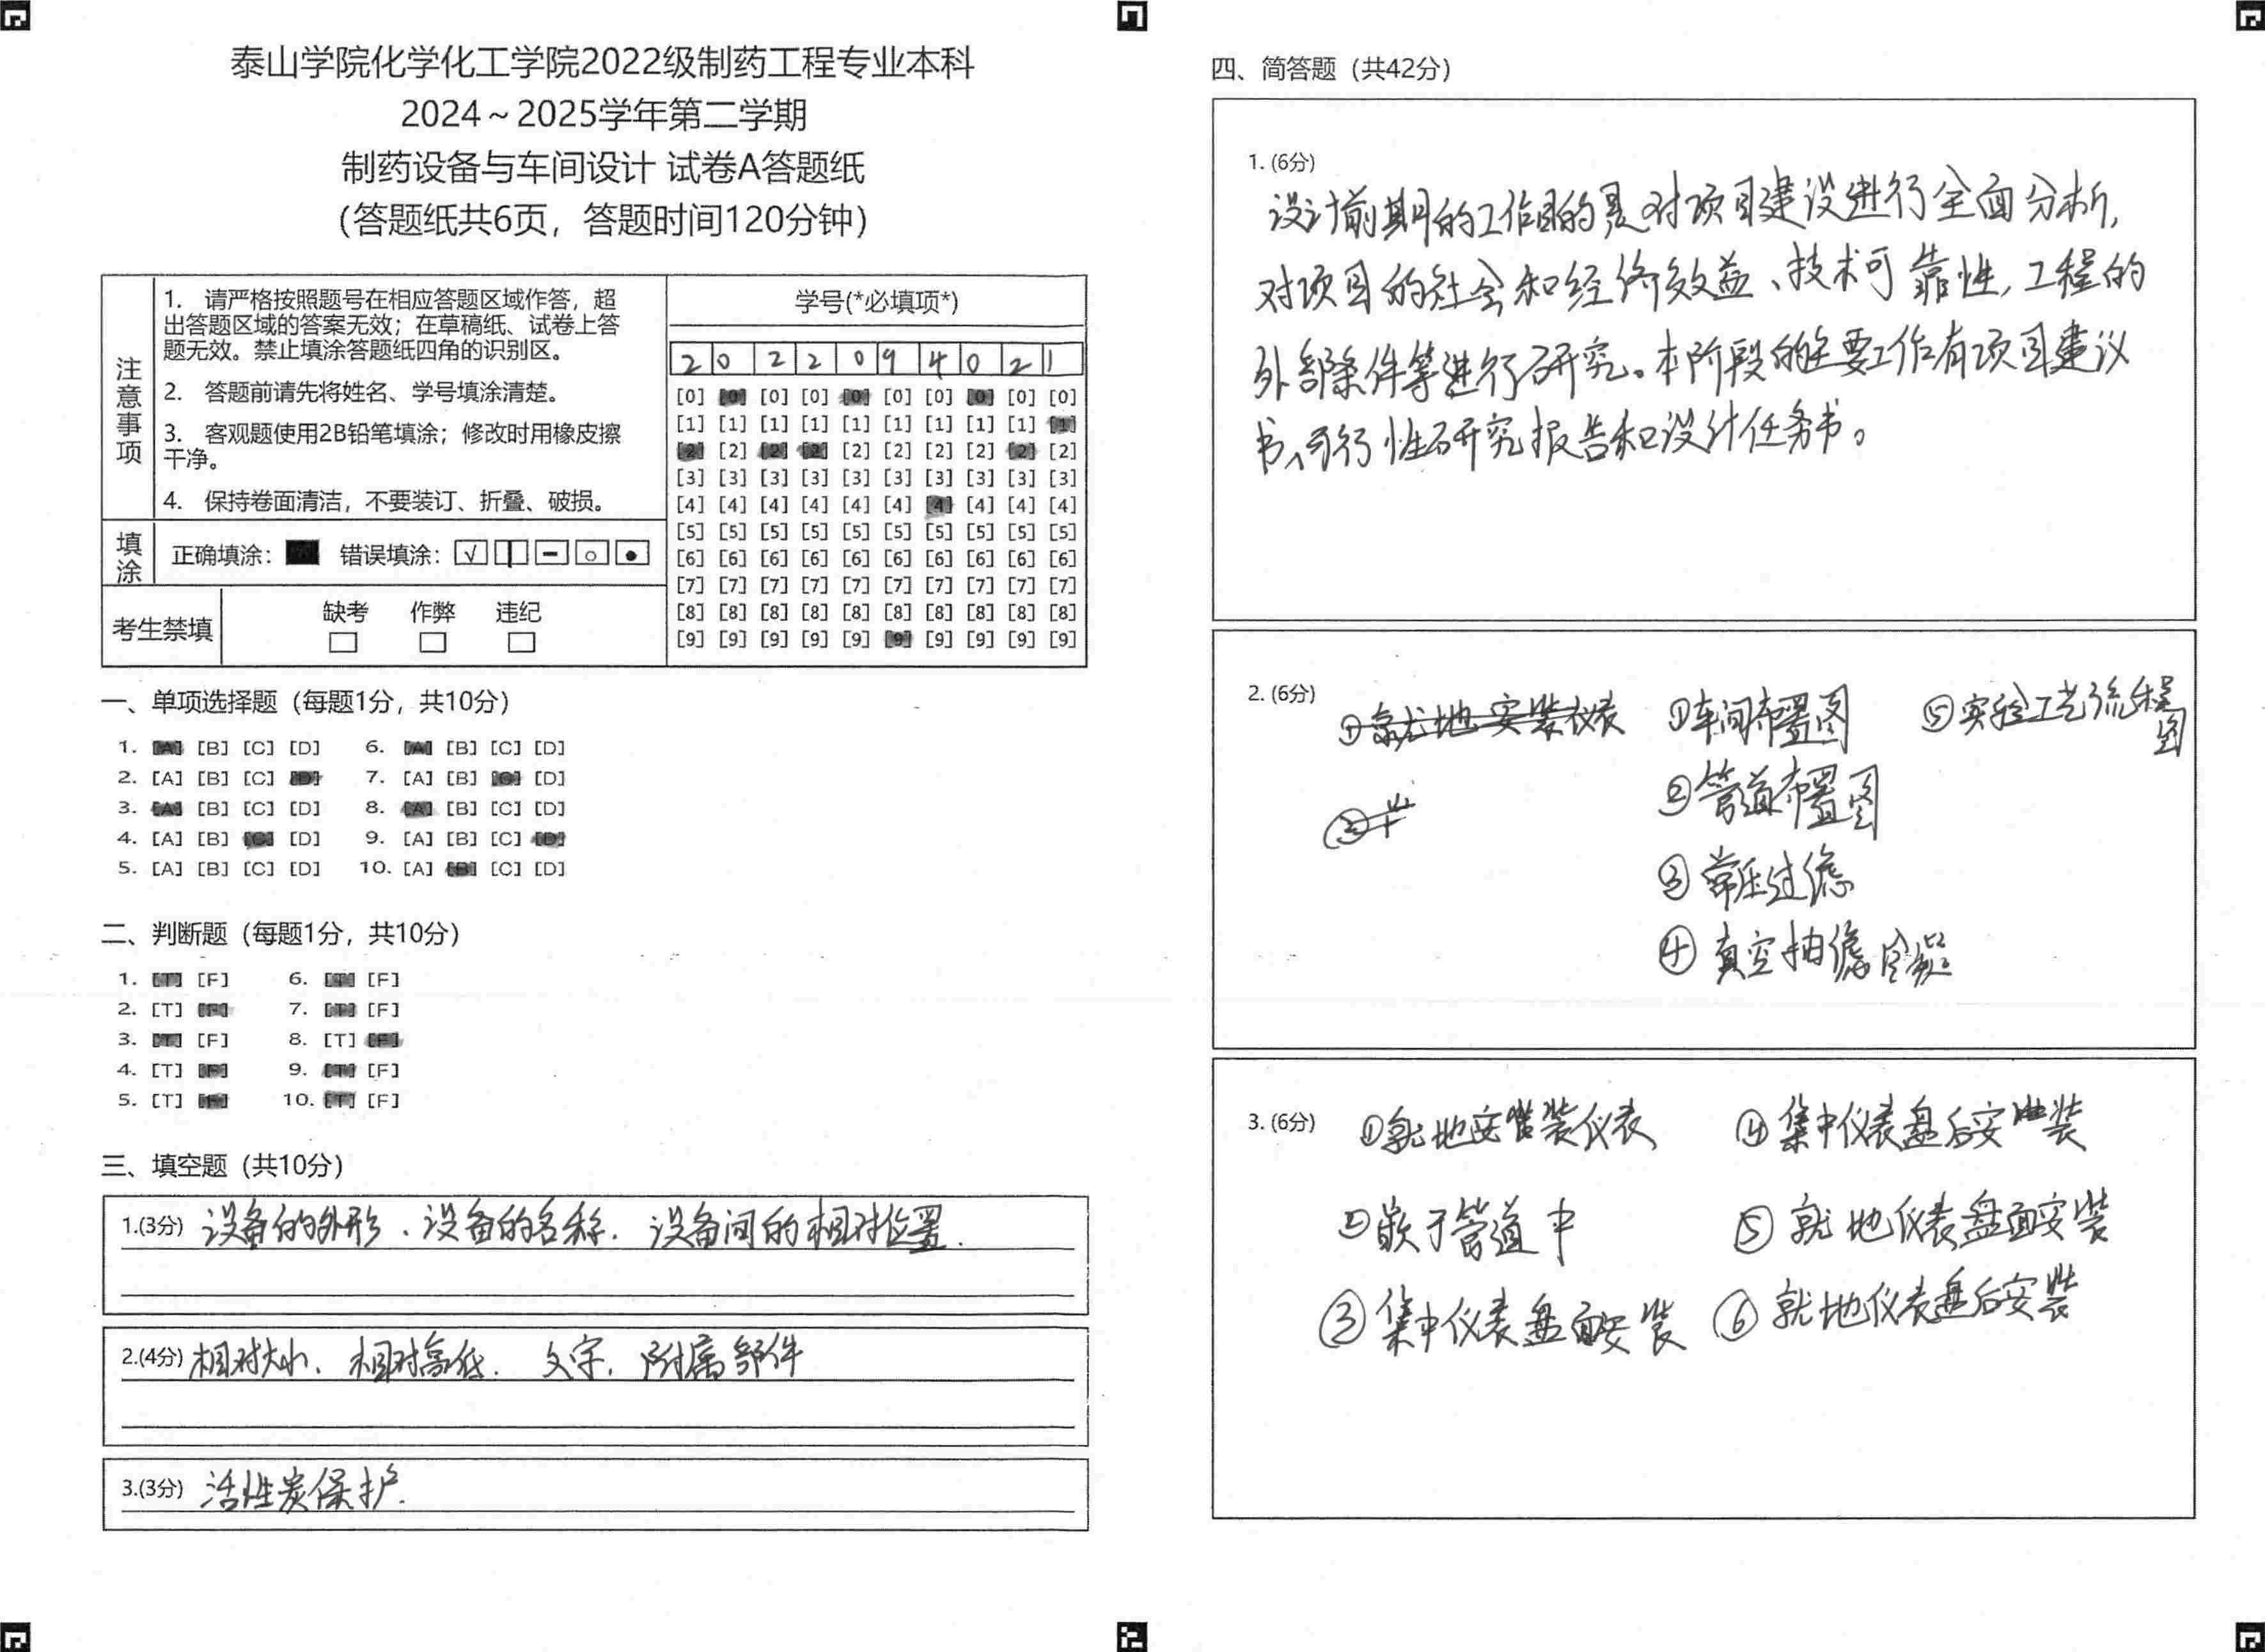 泰山学院化学化工学院2022级制药工程专业本科
2024～2025学年第二学期
制药设备与车间设计 试卷A答题纸
（答题纸共6页，答题时间120分钟）
注意事项
1. 请严格按照题号在相应答题区域作答，超
出答题区域的答案无效；在草稿纸、试卷上答
题无效。禁止填涂答题纸四角的识别区。
2. 答题前请先将姓名、学号填涂清楚。
3. 客观题使用2B铅笔填涂；修改时用橡皮擦
干净。
4. 保持卷面清洁，不要装订、折叠、破损。
填涂
正确填涂： 错误填涂：
考生禁填
缺考 作弊 违纪
学号(*必填项*)
2 0 2 2 0 9 4 0 2 1
[0] [0] [0] [0] [0] [0] [0] [0] [0] [0]
[1] [1] [1] [1] [1] [1] [1] [1] [1] [1]
[2] [2] [2] [2] [2] [2] [2] [2] [2] [2]
[3] [3] [3] [3] [3] [3] [3] [3] [3] [3]
[4] [4] [4] [4] [4] [4] [4] [4] [4] [4]
[5] [5] [5] [5] [5] [5] [5] [5] [5] [5]
[6] [6] [6] [6] [6] [6] [6] [6] [6] [6]
[7] [7] [7] [7] [7] [7] [7] [7] [7] [7]
[8] [8] [8] [8] [8] [8] [8] [8] [8] [8]
[9] [9] [9] [9] [9] [9] [9] [9] [9] [9]
一、单项选择题（每题1分，共10分）
1. [A] [B] [C] [D] 6. [A] [B] [C] [D]
2. [A] [B] [C] [D] 7. [A] [B] [C] [D]
3. [A] [B] [C] [D] 8. [A] [B] [C] [D]
4. [A] [B] [C] [D] 9. [A] [B] [C] [D]
5. [A] [B] [C] [D] 10. [A] [B] [C] [D]
二、判断题（每题1分，共10分）
1. [T] [F] 6. [T] [F]
2. [T] [F] 7. [T] [F]
3. [T] [F] 8. [T] [F]
4. [T] [F] 9. [T] [F]
5. [T] [F] 10. [T] [F]
三、填空题（共10分）
1.(3分) 设备的外形、设备的名称．设备间的相对位置．
2.(4分) 相对大小、相对高低．文字，附属部件
3.(3分) 活性炭保护．
四、简答题（共42分）
1. (6分)
设计前期的工作目的是对项目建设进行全面分析，
对项目的社会和经济效益、技术可靠性，工程的
外部条件等进行研究。本阶段的主要工作有项目建议
书、可行性研究报告和设计任务书。
2. (6分) ①就地安装仪表 ①车间布置图 ⑤实验工艺流程图
②管道布置图
③常压过滤
④真空抽滤冷凝
3. (6分) ①就地安装仪表 ④集中仪表盘后安装
②嵌于管道中 ⑤就地仪表盘面安装
③集中仪表盘面安装 ⑥就地仪表盘后安装